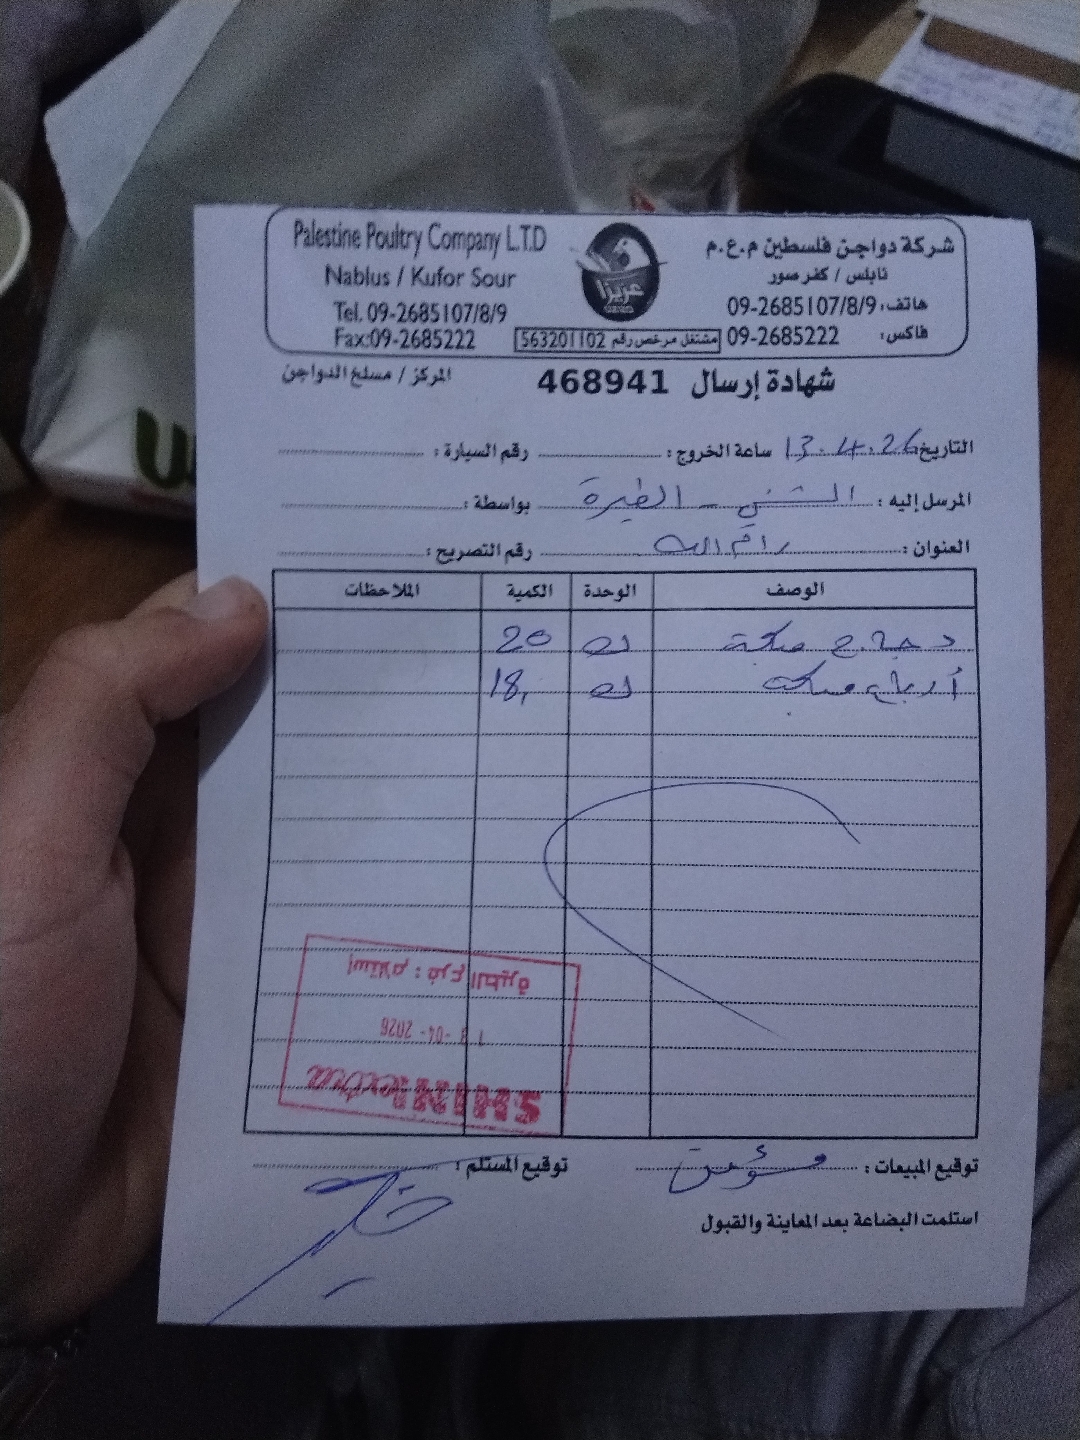 Palestine Poultry Company L.T.D
Nablus / Kufor Sour
Tel. 09-2685107/8/9
Fax:09-2685222
عزيزا
شركة دواجن فلسطين م.ع.م
نابلس / كفر صور
هاتف: 09-2685107/8/9
فاكس: 09-2685222
مشتغل مرخص رقم 563201102
شهادة إرسال 468941
المركز / مسلخ الدواجن
التاريخ 13.4.26 ساعة الخروج: رقم السيارة:
المرسل إليه: الشني - الطيرة بواسطة:
العنوان: رام الله رقم التصريح:
الوصف الوحدة الكمية الملاحظات
دجاج ك 20
أرباع ك 18
إستلام: فرع الطيرة
13 -04- 2026
SHINI extra
توقيع المبيعات: مؤمن توقيع المستلم:
استلمت البضاعة بعد المعاينة والقبول